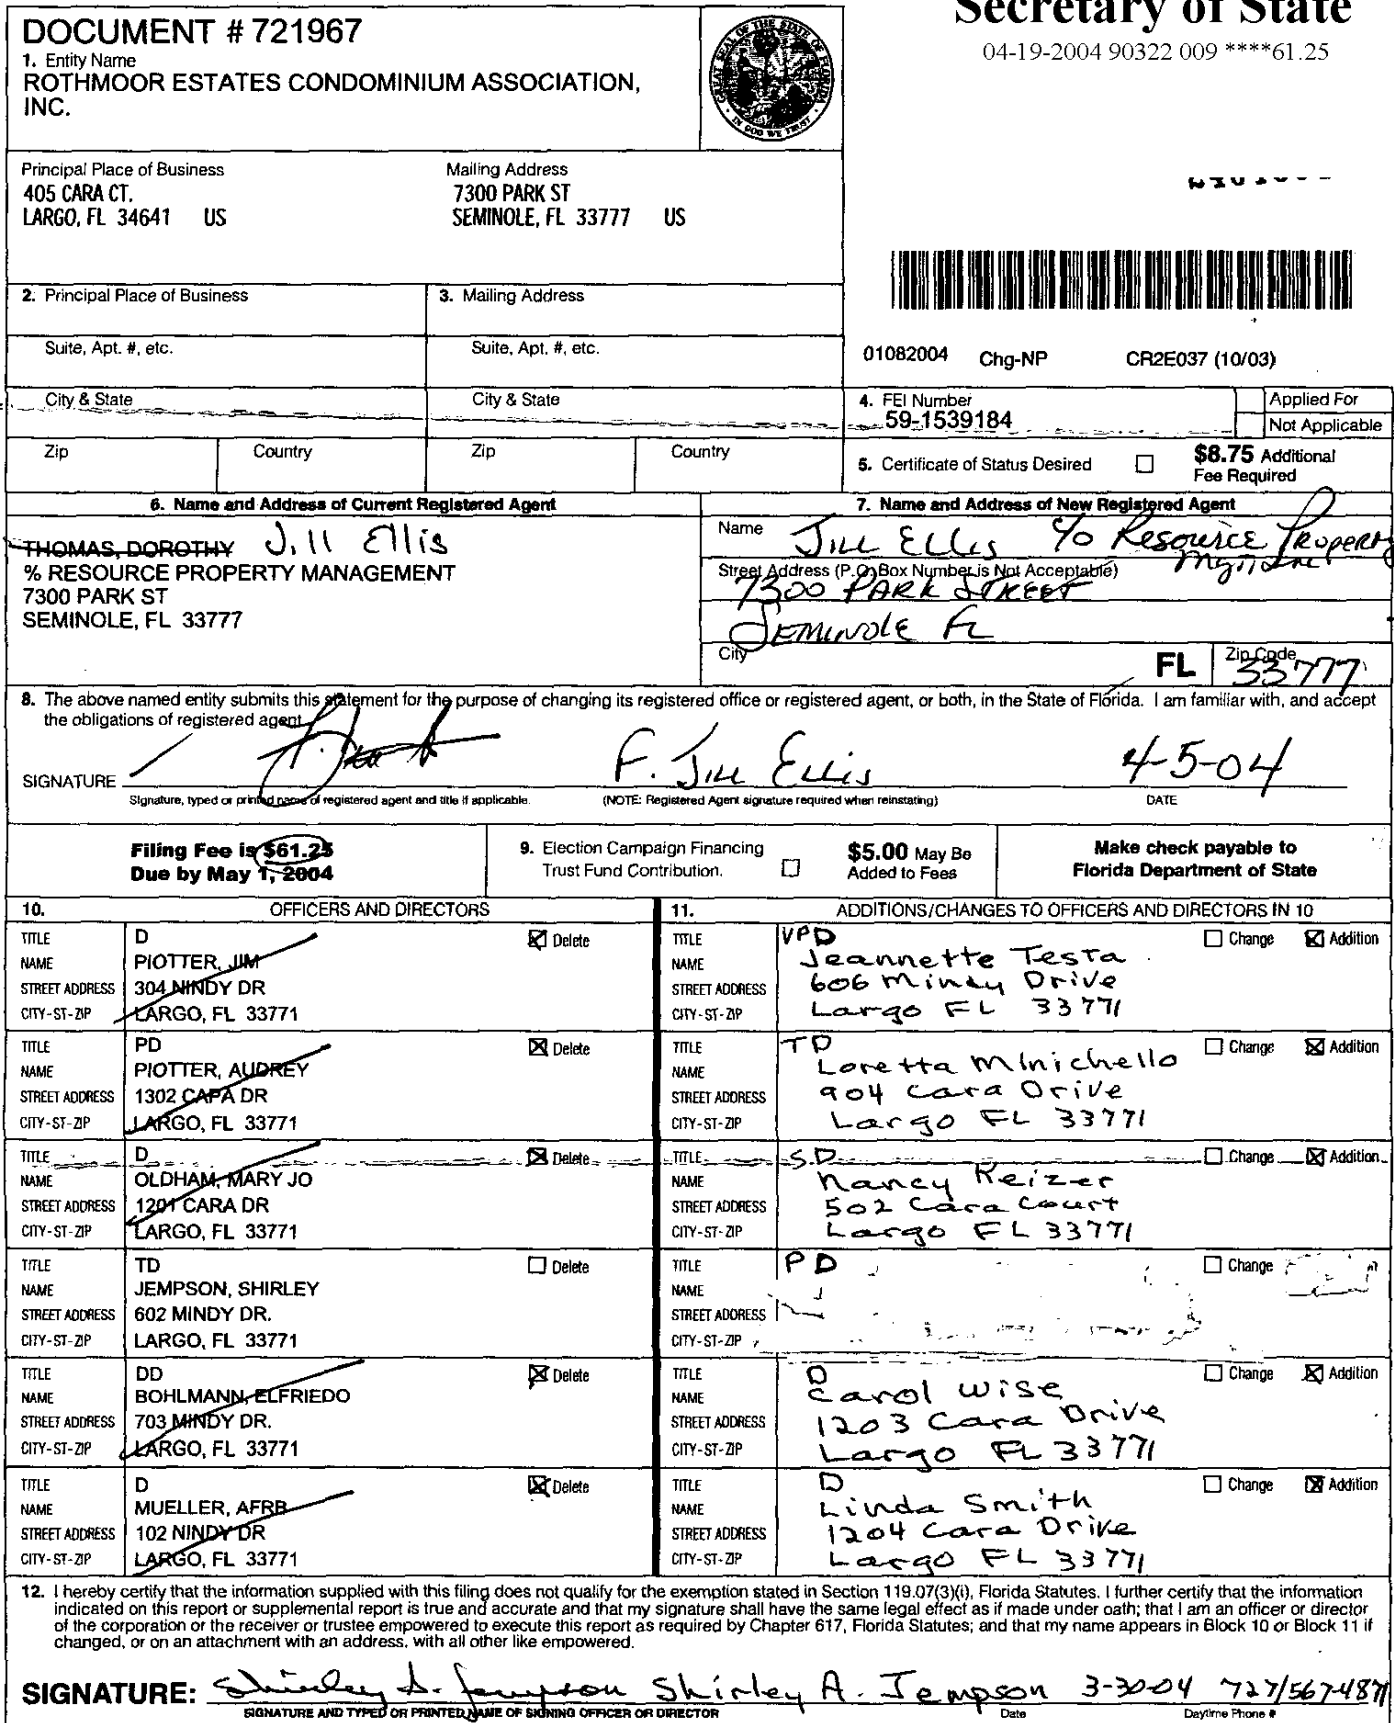 Secretary of State
04-19-2004 90322 009 ****61.25
DOCUMENT # 721967
1. Entity Name
ROTHMOOR ESTATES CONDOMINIUM ASSOCIATION,
INC.
Principal Place of Business
405 CARA CT.
LARGO, FL 34641 US
Mailing Address
7300 PARK ST
SEMINOLE, FL 33777 US
2. Principal Place of Business
3. Mailing Address
Suite, Apt. #, etc.
Suite, Apt. #, etc.
01082004 Chg-NP CR2E037 (10/03)
City & State
City & State
4. FEI Number
59-1539184
Applied For
Not Applicable
Zip
Country
Zip
Country
5. Certificate of Status Desired
$8.75 Additional
Fee Required
6. Name and Address of Current Registered Agent
THOMAS, DOROTHY Jill Ellis
% RESOURCE PROPERTY MANAGEMENT
7300 PARK ST
SEMINOLE, FL 33777
7. Name and Address of New Registered Agent
Name Jill Ellis c/o Resource Property
Street Address (P.O. Box Number is Not Acceptable)
7300 Park Street
Seminole FL
City
FL
Zip Code
33777
8. The above named entity submits this statement for the purpose of changing its registered office or registered agent, or both, in the State of Florida. I am familiar with, and accept
the obligations of registered agent.
SIGNATURE F. Jill Ellis 4-5-04
Signature, typed or printed name of registered agent and title if applicable. (NOTE: Registered Agent signature required when reinstating) DATE
Filing Fee is $61.25
Due by May 1, 2004
9. Election Campaign Financing
Trust Fund Contribution.
$5.00 May Be
Added to Fees
Make check payable to
Florida Department of State
10. OFFICERS AND DIRECTORS
11. ADDITIONS/CHANGES TO OFFICERS AND DIRECTORS IN 10
TITLE D Delete
NAME PIOTTER, JIM
STREET ADDRESS 304 NINDY DR
CITY-ST-ZIP LARGO, FL 33771
TITLE VPD Change Addition
NAME Jeannette Testa
STREET ADDRESS 606 Mindy Drive
CITY-ST-ZIP Largo FL 33771
TITLE PD Delete
NAME PIOTTER, AUDREY
STREET ADDRESS 1302 CAPA DR
CITY-ST-ZIP LARGO, FL 33771
TITLE TD Change Addition
NAME Loretta Minichello
STREET ADDRESS 904 Cara Drive
CITY-ST-ZIP Largo FL 33771
TITLE D Delete
NAME OLDHAM, MARY JO
STREET ADDRESS 1201 CARA DR
CITY-ST-ZIP LARGO, FL 33771
TITLE SD Change Addition
NAME Nancy Reizer
STREET ADDRESS 502 Cara Court
CITY-ST-ZIP Largo FL 33771
TITLE TD Delete
NAME JEMPSON, SHIRLEY
STREET ADDRESS 602 MINDY DR.
CITY-ST-ZIP LARGO, FL 33771
TITLE PD Change
NAME
STREET ADDRESS
CITY-ST-ZIP
TITLE DD Delete
NAME BOHLMANN, ELFRIEDO
STREET ADDRESS 703 MINDY DR.
CITY-ST-ZIP LARGO, FL 33771
TITLE D Change Addition
NAME Carol Wise
STREET ADDRESS 1203 Cara Drive
CITY-ST-ZIP Largo FL 33771
TITLE D Delete
NAME MUELLER, AFRB
STREET ADDRESS 102 NINDY DR
CITY-ST-ZIP LARGO, FL 33771
TITLE D Change Addition
NAME Linda Smith
STREET ADDRESS 1204 Cara Drive
CITY-ST-ZIP Largo FL 33771
12. I hereby certify that the information supplied with this filing does not qualify for the exemption stated in Section 119.07(3)(i), Florida Statutes. I further certify that the information
indicated on this report or supplemental report is true and accurate and that my signature shall have the same legal effect as if made under oath; that I am an officer or director
of the corporation or the receiver or trustee empowered to execute this report as required by Chapter 617, Florida Statutes; and that my name appears in Block 10 or Block 11 if
changed, or on an attachment with an address, with all other like empowered.
SIGNATURE: Shirley A. Jempson Shirley A. Jempson 3-30-04 727/567-4871
SIGNATURE AND TYPED OR PRINTED NAME OF SIGNING OFFICER OR DIRECTOR Date Daytime Phone #